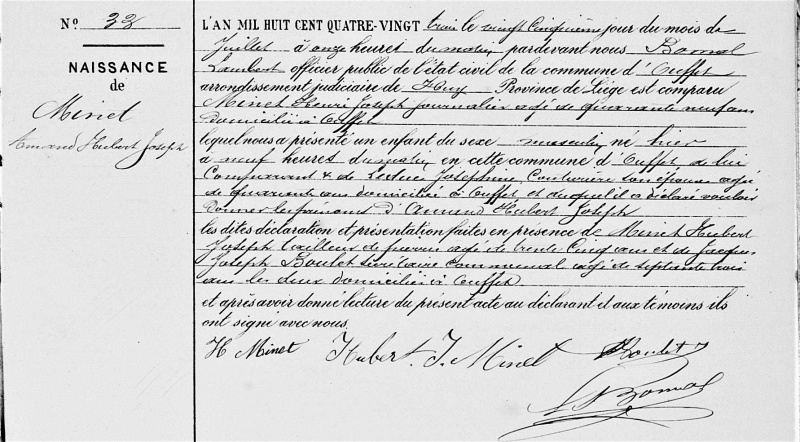 N° 32
NAISSANCE
de
Minet
Armand Hubert Joseph
L'AN MIL HUIT CENT QUATRE-VINGT trois le vingt cinquième jour du mois de
Juillet à onze heures du matin pardevant nous Bonnal
Lambert officier public de l'état civil de la commune d'Ouffet
arrondissement judiciaire de Huy Province de Liège est comparu
Minet Henri Joseph journalier agé de quarante neuf ans
domicilié à Ouffet
lequel nous a présenté un enfant du sexe masculin né hier
à neuf heures du matin en cette commune d'Ouffet de lui
Comparant & de Josephine Couturière son épouse agée
de quarante ans domiciliée à Ouffet et auquel il a déclaré vouloir
donner les prénoms d'Armand Hubert Joseph
les dites déclaration et présentation faites en présence de Minet Hubert
Joseph tailleur de pierres agé de trente cinq ans et de Jacques
Joseph Boulet secrétaire communal agé de septante trois
ans les deux domiciliés à Ouffet
et après avoir donné lecture du présent acte au déclarant et aux témoins ils
ont signé avec nous.
H Minet Hubert. J. Minet Boulet J